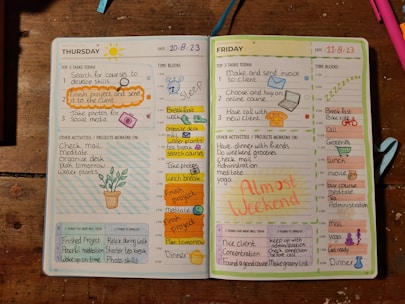 THURSDAY
DATE: 10-8-23
TOP 3 TASKS TODAY
TIME BLOCKS
1 Search for courses to
develop skills
2 Finish project and send
it to the client
3 Take photos for
Social media
Sleep
Breakfast
Organize desk
water plants
tea break
search course
Take photos
Lunch break
Finish
project
meditate
Finish
project
Plan tomorrow
Dinner
OTHER ACTIVITIES / PROJECTS WORKING ON:
Check mail
meditate
Organize desk
Plan tomorrow
Water plants
Finished Project
Peaceful meditation
Woke up on time
Relax during walk
Shorter tea break
Photo skills
FRIDAY
DATE: 11-8-23
TOP 3 TASKS TODAY
TIME BLOCKS
1 Make and send invoice
to client
2 Choose and buy an
online course
3 Have call with
new client
Breakfast
Bike ride
Call
Groceries
Lunch
movie
Buy course
meditate
Tea
Administration
mail
yoga
Get ready
Dinner
OTHER ACTIVITIES / PROJECTS WORKING ON:
Have dinner with friends
Do weekend groceries
Check mail
Administration
meditate
yoga
Almost
Weekend
Nice client
Concentration
Found a good course
Keep up with
administration
Check connection
before call
Make grocery list